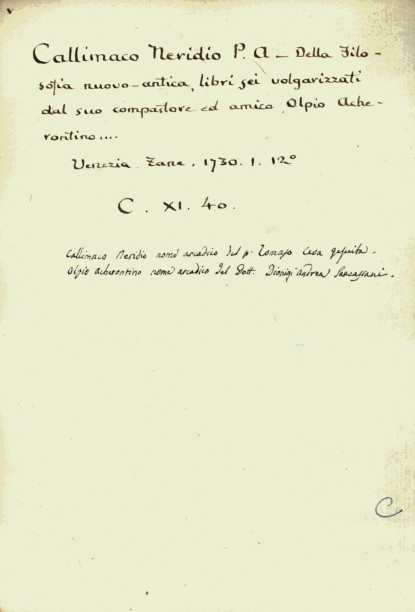 Callimaco Neridio P. A – Della Filo-
sofia nuovo-antica, libri sei volgarizzati
dal suo compastore ed amico Olpio Ache-
rontino....
Venezia. Zane. 1730. 1. 12º
C. XI. 40.
Callimaco Neridio nome arcadico del p. Tomaso Ceva gesuita.
Olpio Acherontino nome arcadico del Dott. Dionigi Andrea Sancassani.
C